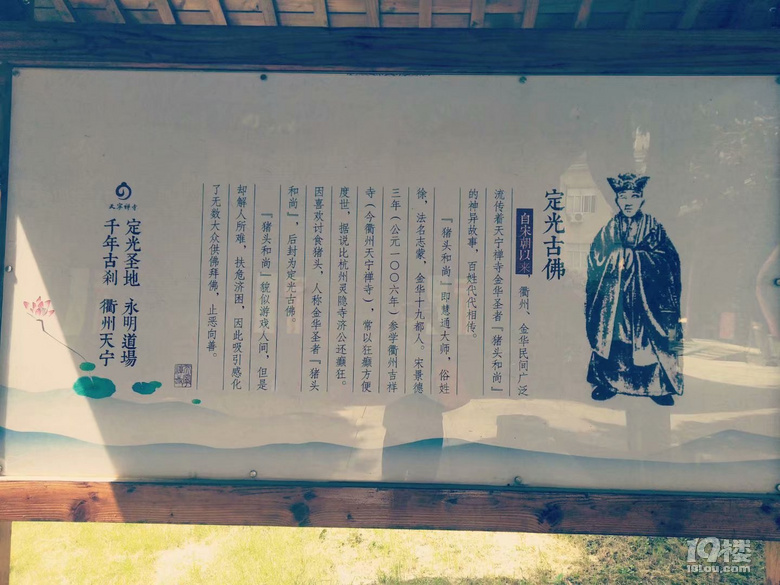 定光古佛
自宋朝以来，衢州、金华民间广泛
流传着天宁禅寺金华圣者『猪头和尚』
的神异故事，百姓代代相传。
『猪头和尚』即慧通大师，俗姓
徐，法名志蒙，金华十九都人。宋景德
三年（公元一〇〇六年）参学衢州吉祥
寺（今衢州天宁禅寺），常以狂癫方便
度世，据说比杭州灵隐寺济公还癫狂。
因喜欢讨食猪头，人称金华圣者『猪头
和尚』，后封为定光古佛。
『猪头和尚』貌似游戏人间，但是
却解人所难，扶危济困，因此吸引感化
了无数大众供佛拜佛，止恶向善。
天宁禅寺
定光圣地 永明道場
千年古刹 衢州天宁
19楼
19lou.com